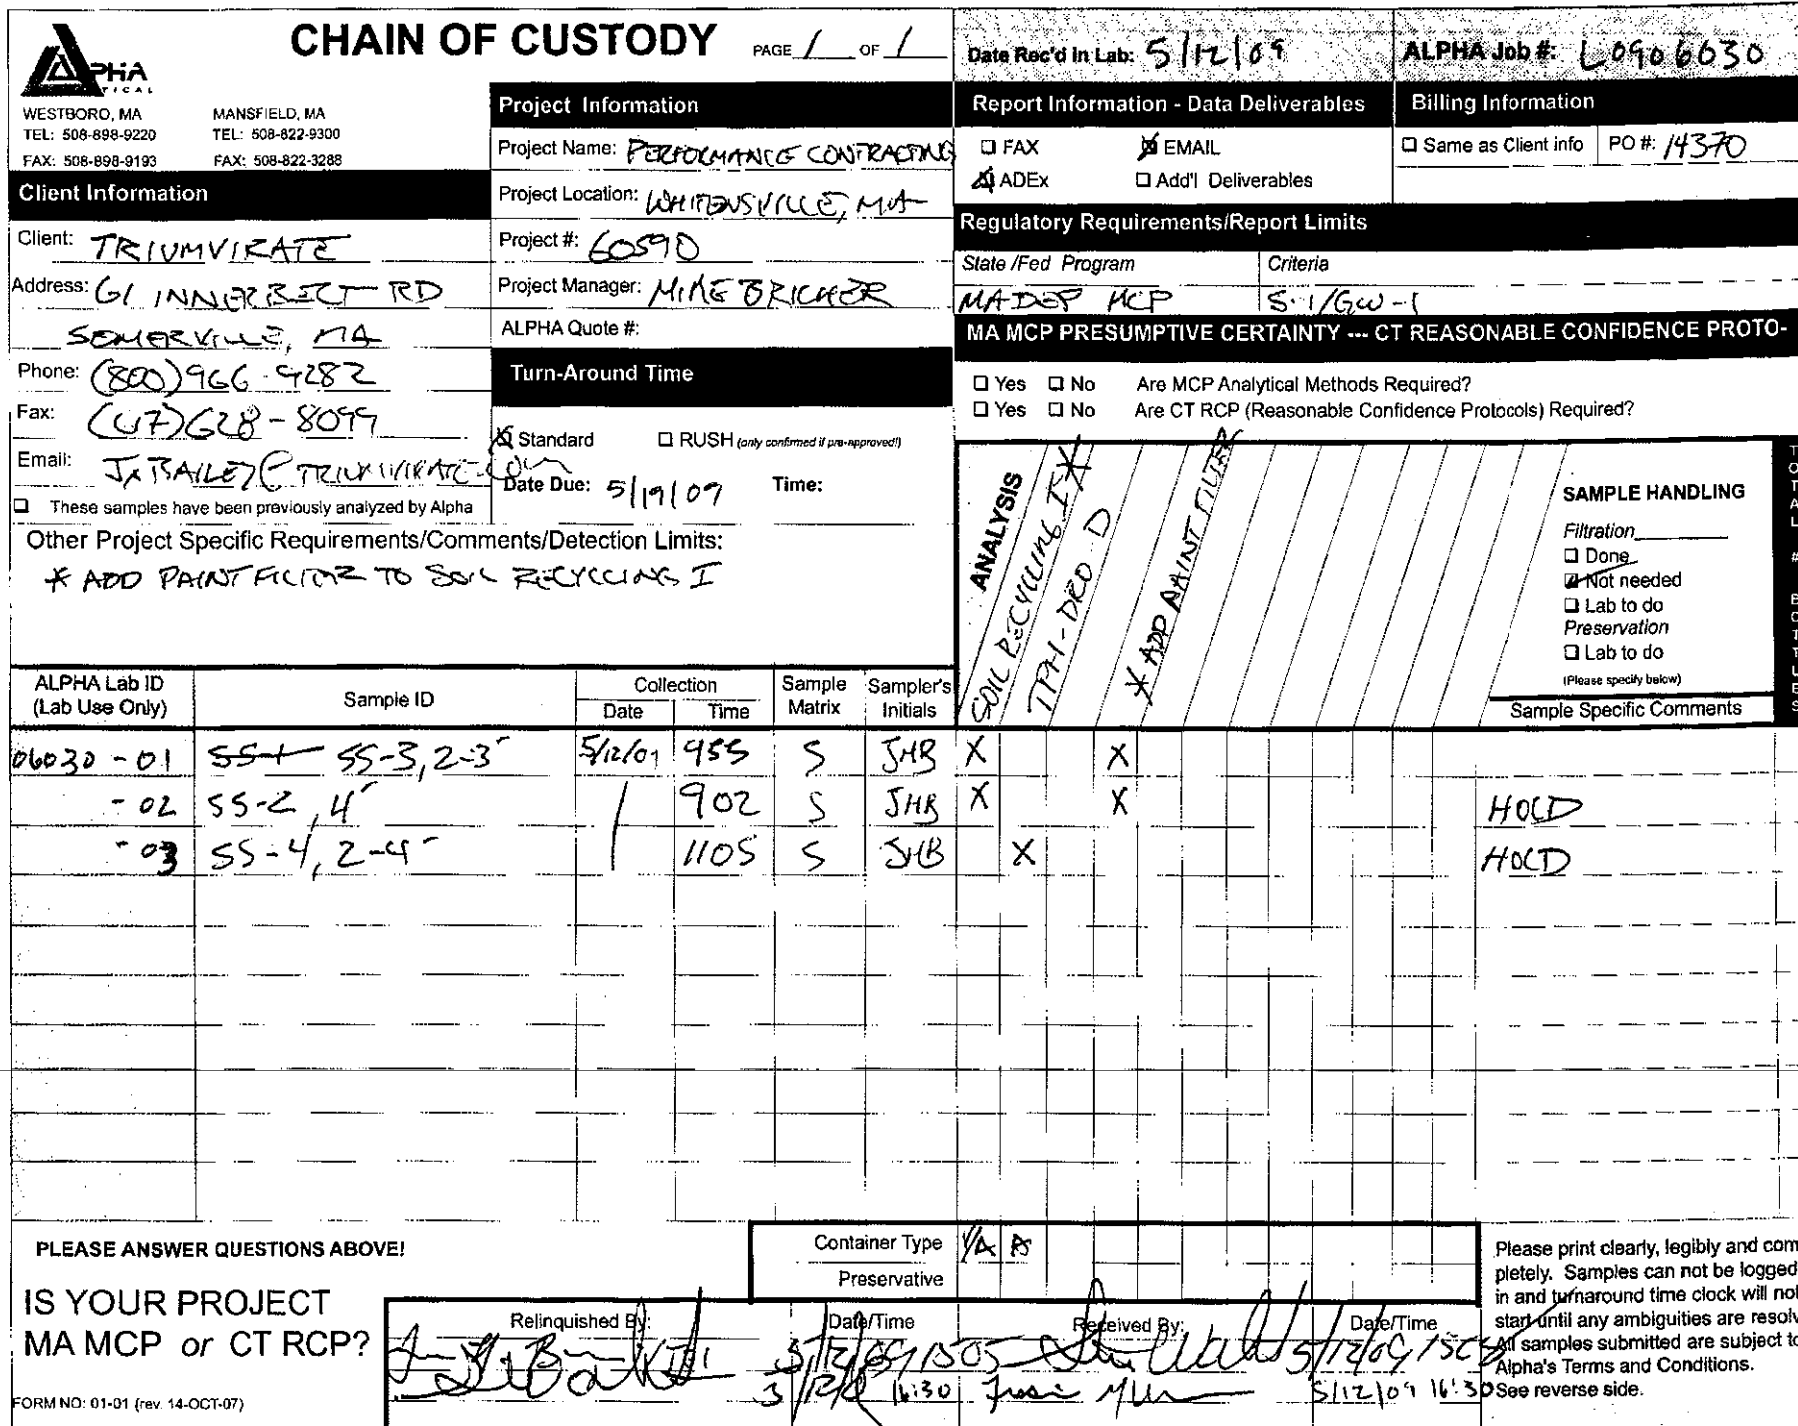 CHAIN OF CUSTODY PAGE 1 OF 1
ALPHA
WESTBORO, MA MANSFIELD, MA
TEL: 508-898-9220 TEL: 508-822-9300
FAX: 508-898-9193 FAX: 508-822-3288
Date Rec'd in Lab: 5/12/09
ALPHA Job #: L0906030
Client Information
Client: TRIUMVIRATE
Address: 61 INNERBELT RD
SOMERVILLE, MA
Phone: (800)966-9282
Fax: (617)628-8099
Email: JxBAILEY@TRIUMVIRATE.COM
☐ These samples have been previously analyzed by Alpha
Project Information
Project Name: PERFORMANCE CONTRACTING
Project Location: WHITENSVILLE, MA
Project #: 60590
Project Manager: MIKE BRICHER
ALPHA Quote #:
Turn-Around Time
☒ Standard ☐ RUSH (only confirmed if pre-approved!)
Date Due: 5/19/09 Time:
Report Information - Data Deliverables
☐ FAX ☒ EMAIL
☒ ADEx ☐ Add'l Deliverables
Billing Information
☐ Same as Client info PO #: 14370
Regulatory Requirements/Report Limits
State /Fed Program Criteria
MADEP MCP S-1/GW-1
MA MCP PRESUMPTIVE CERTAINTY --- CT REASONABLE CONFIDENCE PROTO-
☐ Yes ☐ No Are MCP Analytical Methods Required?
☐ Yes ☐ No Are CT RCP (Reasonable Confidence Protocols) Required?
Other Project Specific Requirements/Comments/Detection Limits:
* ADD PAINT FILTER TO SOIL RECYCLING I
ANALYSIS
SOIL RECYCLING I *
TPH-DRO-D
* ADD PAINT FILTER
SAMPLE HANDLING
Filtration
☐ Done
☒ Not needed
☐ Lab to do
Preservation
☐ Lab to do
(Please specify below)
TOTAL # BOTTLES
ALPHA Lab ID (Lab Use Only) Sample ID Collection Date Time Sample Matrix Sampler's Initials Sample Specific Comments
06030-01 SS-1 SS-3, 2-3' 5/12/09 955 S JHB X X
-02 SS-2, 4' 902 S JHB X X HOLD
-03 SS-4, 2-4' 1105 S JHB X HOLD
PLEASE ANSWER QUESTIONS ABOVE!
IS YOUR PROJECT
MA MCP or CT RCP?
FORM NO: 01-01 (rev. 14-OCT-07)
Container Type
Preservative
Relinquished By: Date/Time Received By: Date/Time
5/12/09 1505 5/12/09 1505
16:30 5/12/09 16:30
Please print clearly, legibly and com
pletely. Samples can not be logged
in and turnaround time clock will not
start until any ambiguities are resolv
All samples submitted are subject to
Alpha's Terms and Conditions.
See reverse side.